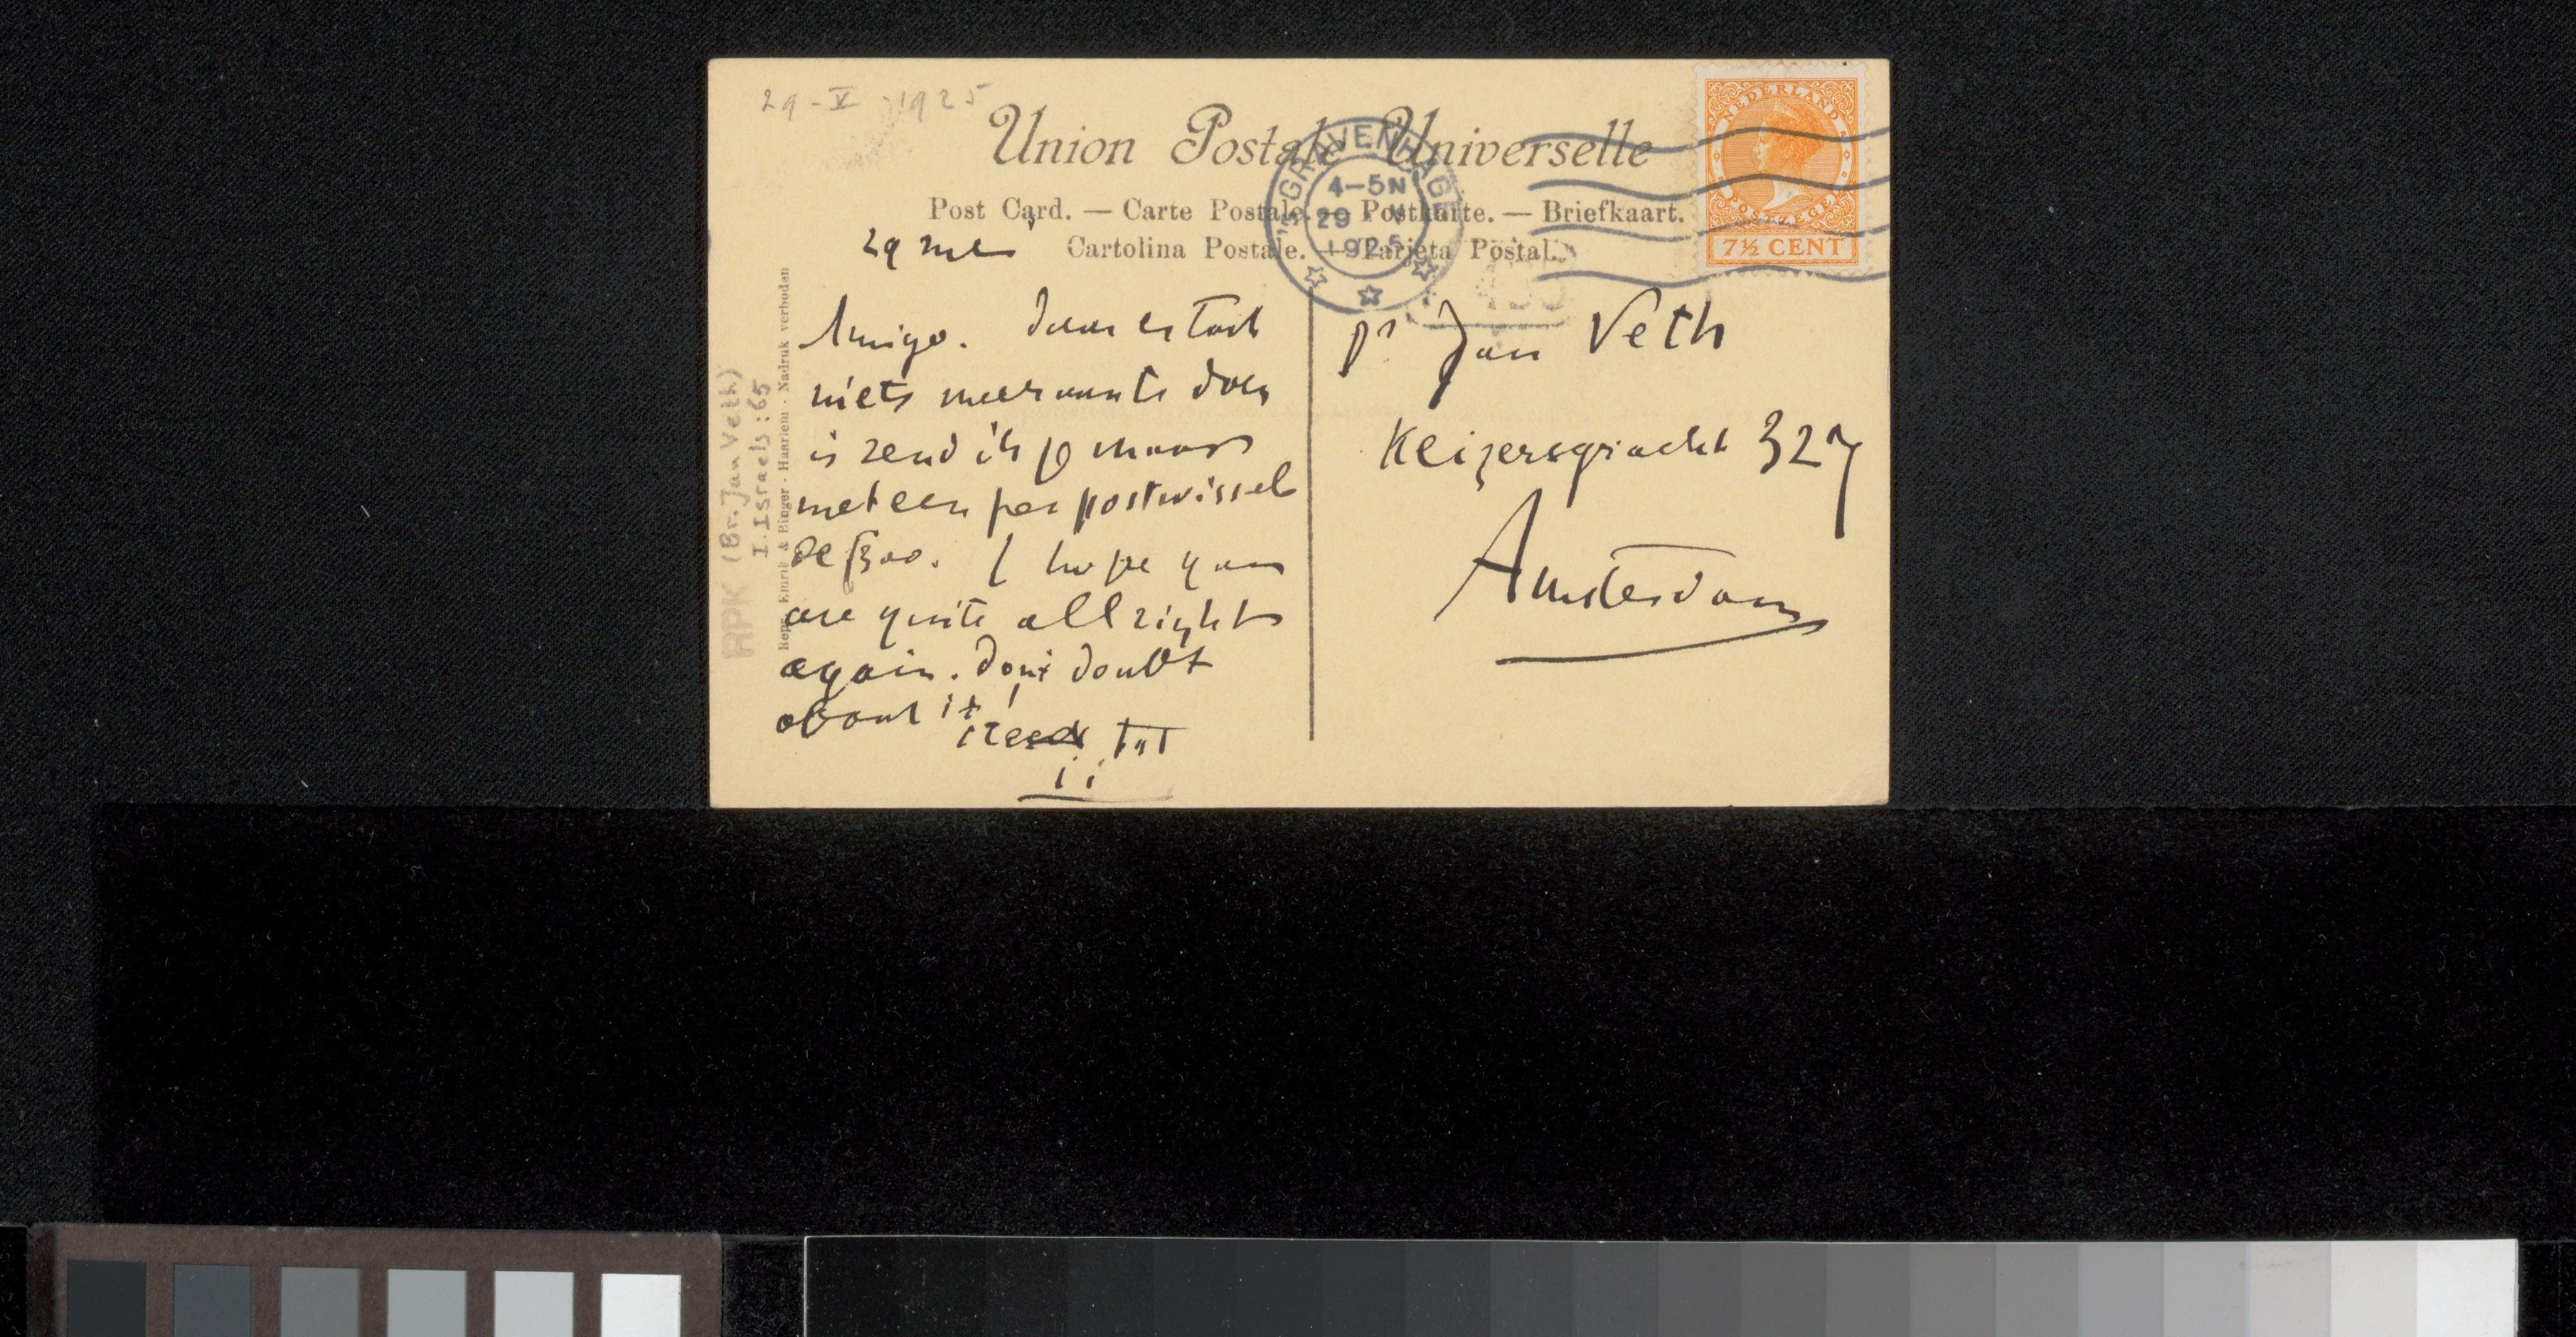 29-V-1925
Union Postale Universelle
Post Card. — Carte Postale. — Postkarte. — Briefkaart.
Cartolina Postale. — Tarjeta Postal.
'S GRAVENHAGE
4-5N
29 V
1925
NEDERLAND
POSTZEGEL
7½ CENT
29 mei
Amigo. daar er toch
niets meer aan te doen
is zend ik je maar
meteen per postwissel
de f300. I hope you
are quite allright
again. don't doubt
about it!
steeds tut
ii
Jan Veth
Keizersgracht 327
Amsterdam
RPK (Br. Jan Veth)
I. Israels: 65
Repr. Emrik & Binger - Haarlem - Nadruk verboden